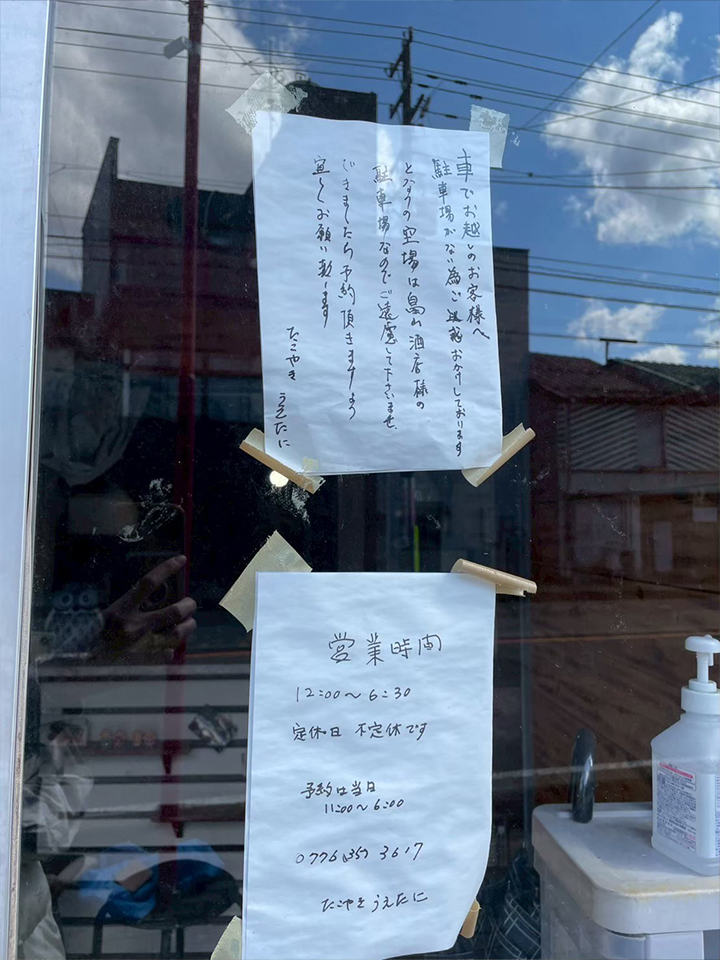 車でお越しのお客様へ
駐車場がない為ご迷惑おかけしております
となりの空場は畠山酒店様の
駐車場なのでご遠慮して下さいませ。
できましたら予約頂きますよう
宜しくお願い致します
たこやき うえたに
営業時間
12:00〜6:30
定休日 不定休です
予約は当日
11:00〜6:00
0776(35)3617
たこやき うえたに